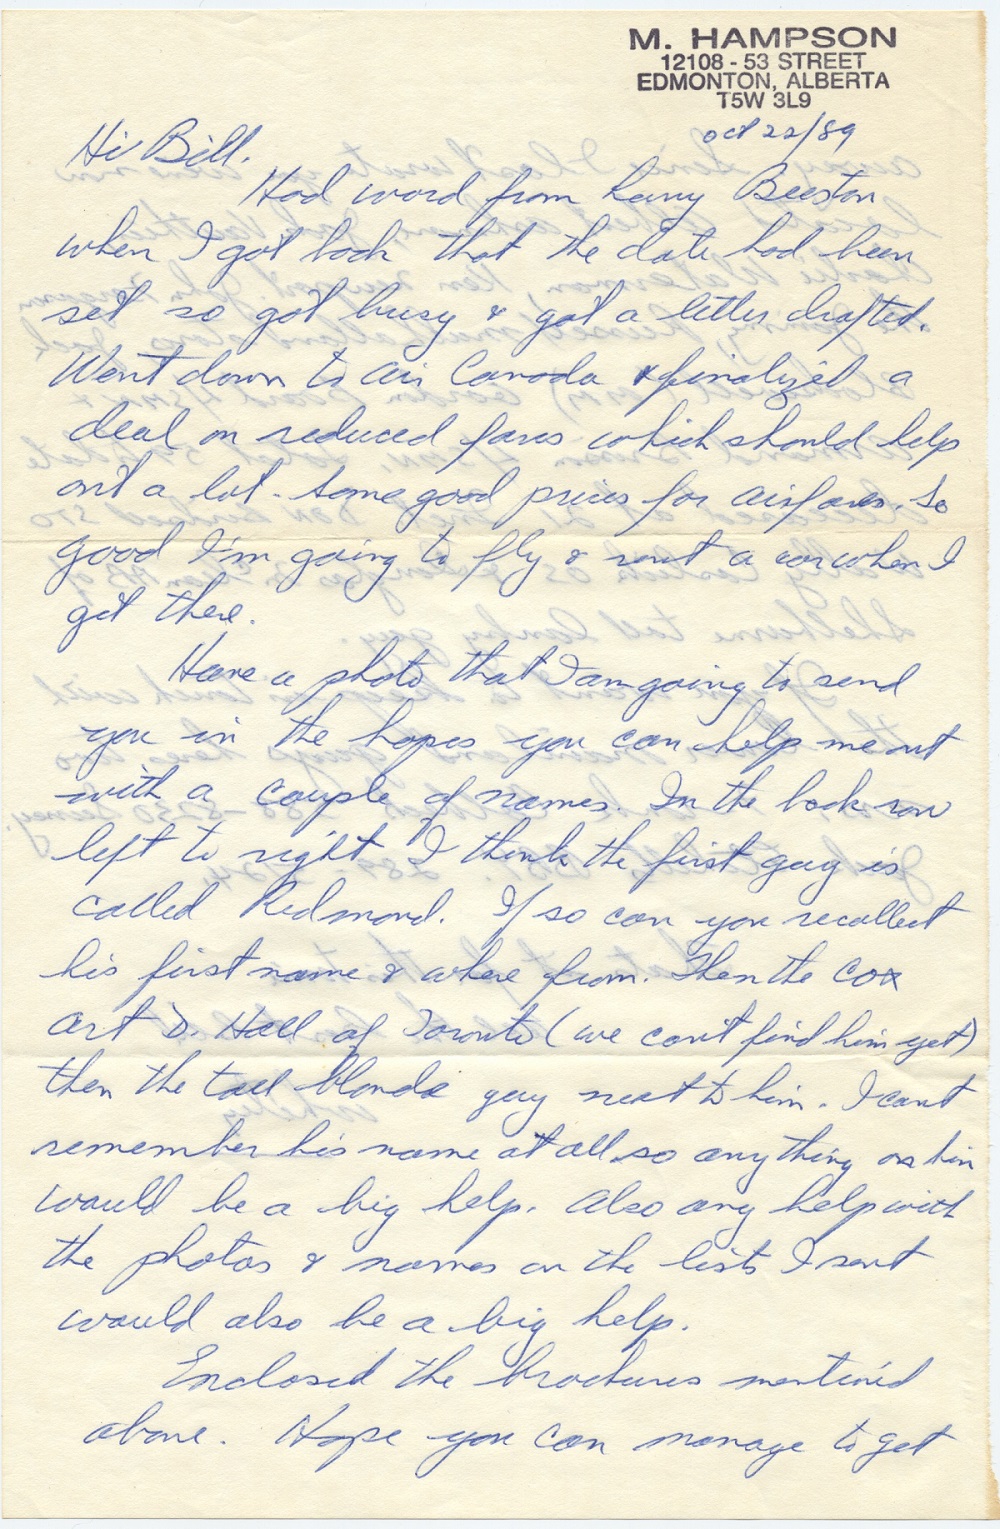 M. HAMPSON
12108 - 53 STREET
EDMONTON, ALBERTA
T5W 3L9
Oct 22/89
Hi Bill.
Had word from Harry Beeston
when I got back that the date had been
set so got busy & got a letter drafted.
Went down to Air Canada & finalized a
deal on reduced fares which should help
out a lot - some good prices for airfares. So
good I'm going to fly & rent a car when I
get there.
Have a photo that I am going to send
you in the hopes you can help me out
with a couple of names. In the back row
left to right I think the first guy is
called Redmond. If so can you recollect
his first name & where from. Then the cox
Art D. Hall of Toronto (we can't find him yet)
then the tall blonde guy next to him. I cant
remember his name at all so any thing on him
would be a big help. Also any help with
the photos & names on the lists I sent
would also be a big help.
Enclosed the brochures mention'd
above. Hope you can manage to get